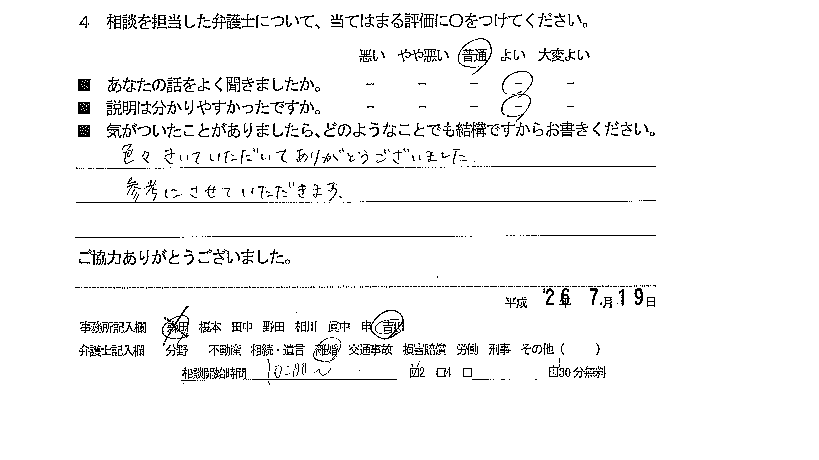 4 相談を担当した弁護士について、当てはまる評価に〇をつけてください。
悪い やや悪い 普通 よい 大変よい
■ あなたの話をよく聞きましたか。 - - - - -
■ 説明は分かりやすかったですか。 - - - - -
■ 気がついたことがありましたら、どのようなことでも結構ですからお書きください。
色々きいていただいてありがとうございました
参考にさせていただきます、
ご協力ありがとうございました。
平成 '26年 7.月19日
事務所記入欄 榎本 田中 野田 相川 吉田
弁護士記入欄 分野 不動産 相続・遺言 離婚 交通事故 損害賠償 労働 刑事 その他 ( )
相談開始時間 10:00〜 ☑2 □4 □ 30分無料